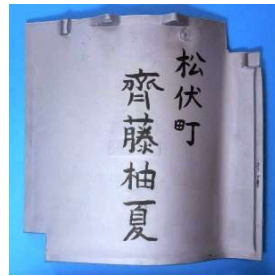 松伏町
齊藤柚夏